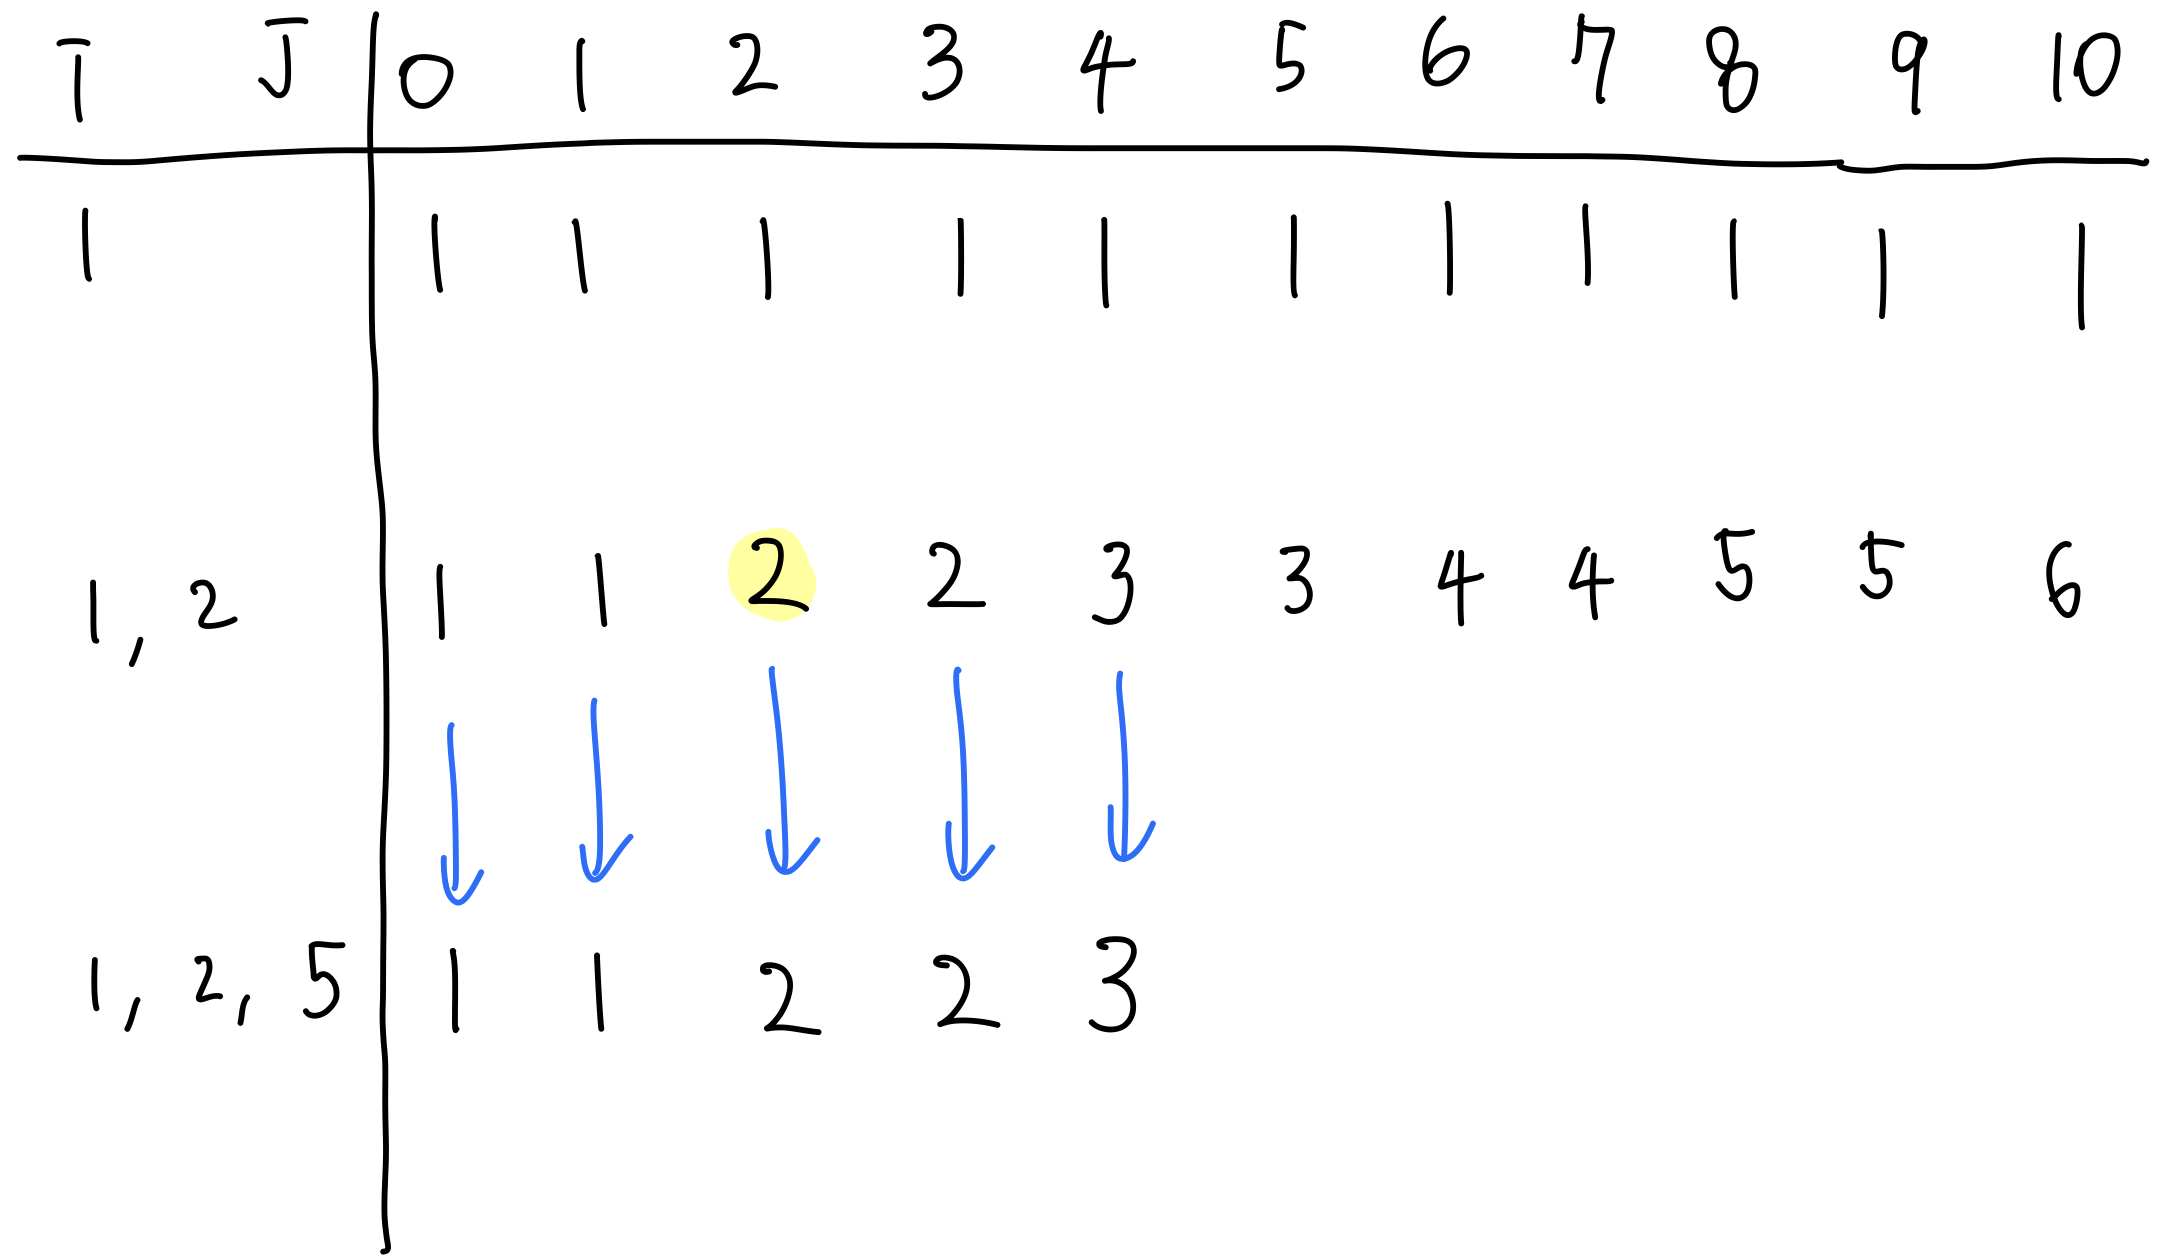 I J 0 1 2 3 4 5 6 7 8 9 10
1 1 1 1 1 1 1 1 1 1 1 1
1, 2 1 1 2 2 3 3 4 4 5 5 6
1, 2, 5 1 1 2 2 3